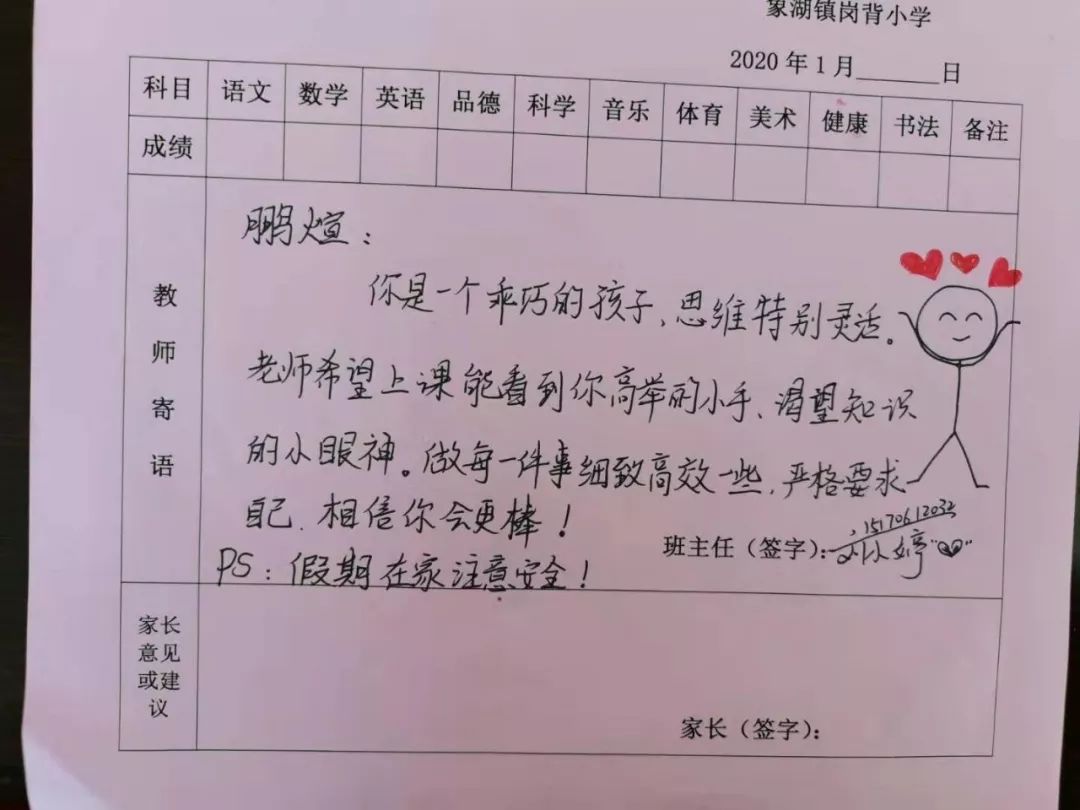 象湖镇岗背小学
2020 年 1 月______日
科目 语文 数学 英语 品德 科学 音乐 体育 美术 健康 书法 备注
成绩
教师寄语
鹏煊：
你是一个乖巧的孩子、思维特别灵活。
老师希望上课能看到你高举的小手、渴望知识
的小眼神。做每一件事细致高效一些，严格要求
自己、相信你会更棒！
15170612032
班主任（签字）：
PS：假期在家注意安全！
家长
意见
或建
议
家长（签字）：